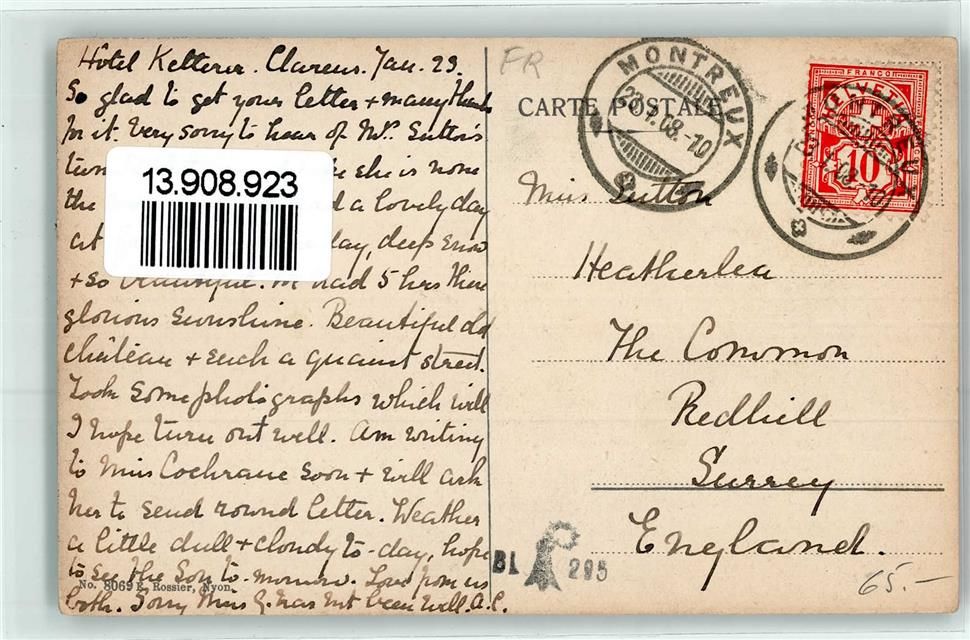 Hotel Ketterer. Clarens. Jan. 23.
So glad to get your letter + many thanks
for it. Very sorry to hear of Mrs. Sutton's
she is none
the d a lovely day
at day, deep snow
+ so beautiful. We had 5 hrs there
glorious sunshine. Beautiful old
château + such a quaint street.
Took some photographs which will
I hope turn out well. Am writing
to Miss Cochrane soon + will ask
her to send round letter. Weather
a little dull + cloudy to-day, hope
to see the Sun to-morrow. Love from us
both. Sorry Miss G. has not been well. A.C.
No. 8069 E. Rossier, Nyon.
13.908.923
FR
CARTE POSTALE
MONTREUX
23.I.08.-10
FRANCO
HELVETIA
10
Miss Sutton
Heatherlea
The Common
Redhill
Surrey
England.
BL 295
65.-